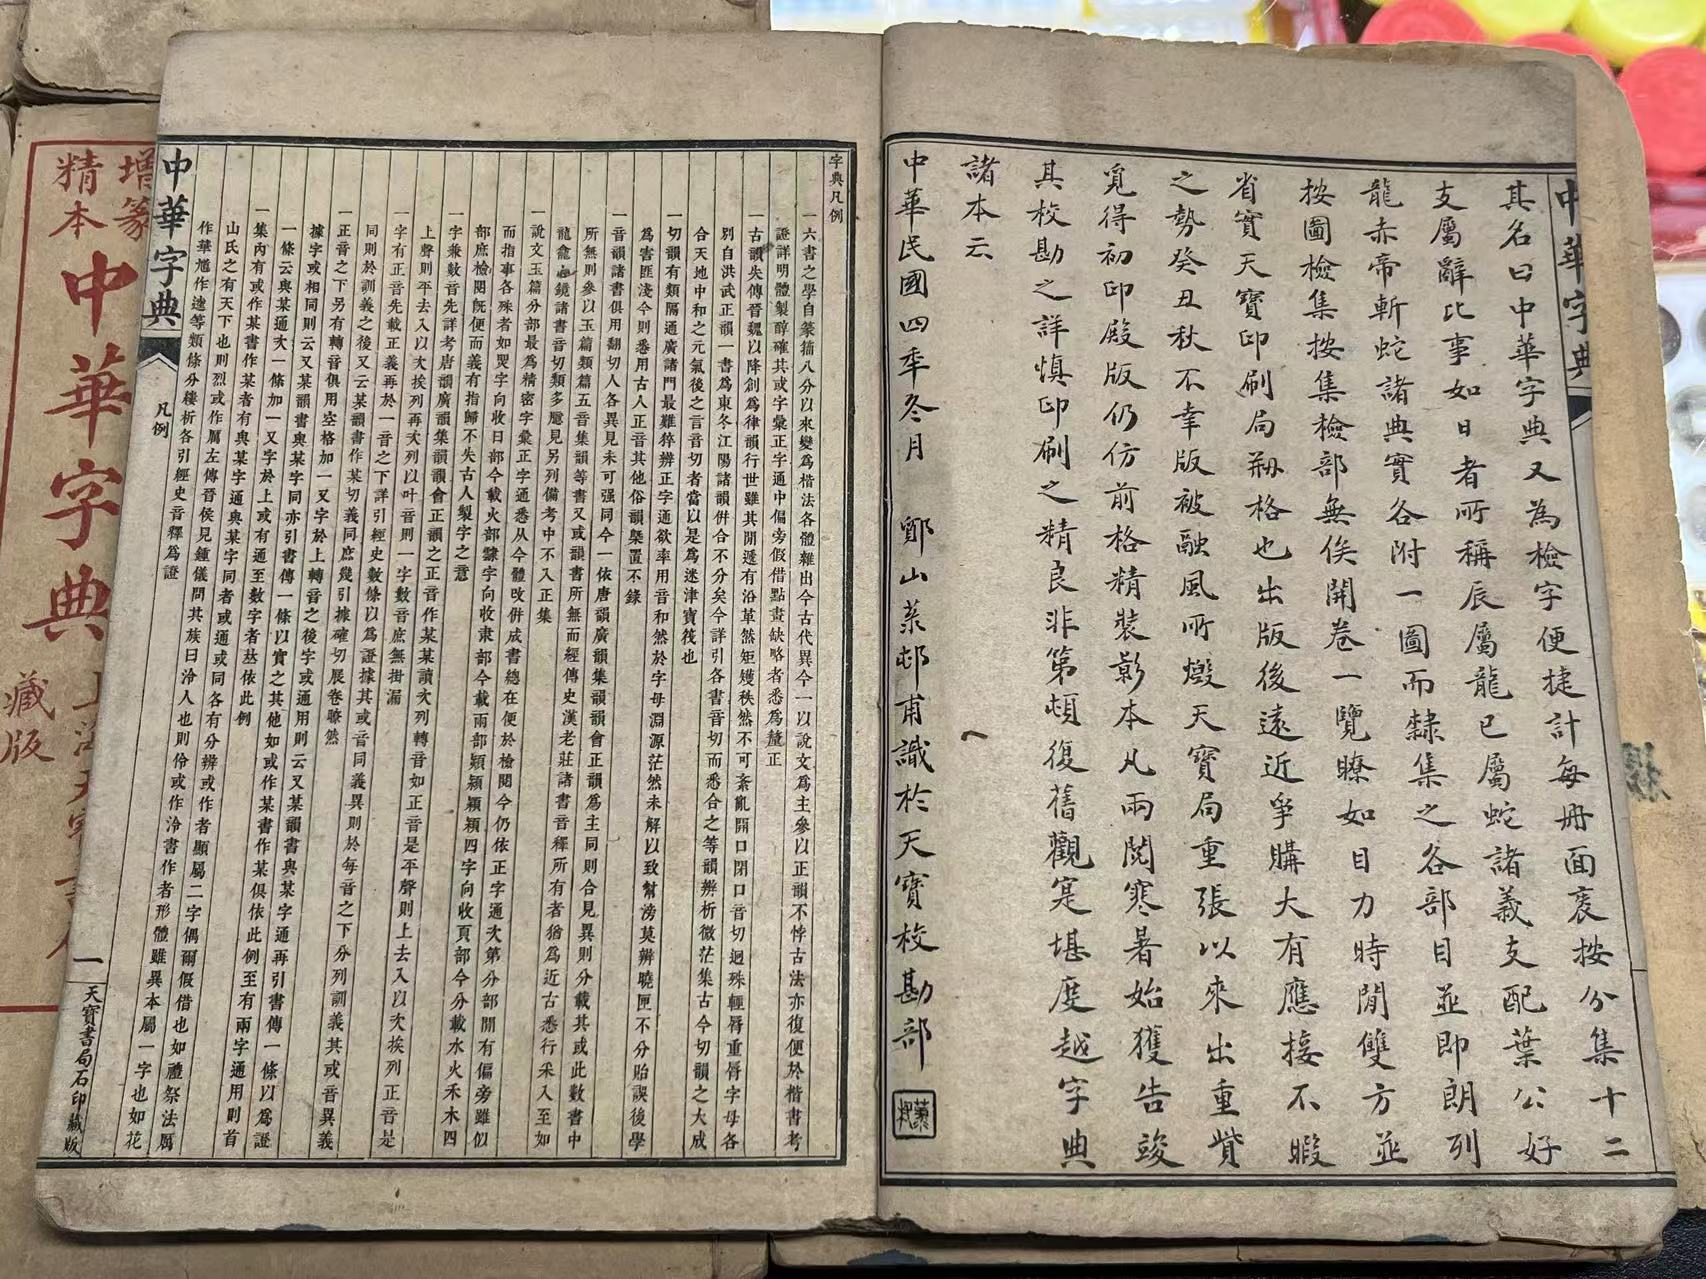 中華字典
其名曰中華字典又為檢字便捷計每冊面裏按分集十二
支屬辭比事如日者所稱辰屬龍巳屬蛇諸義支配葉公好
龍赤帝斬蛇諸典實各附一圖而隸集之各部目並即朗列
按圖檢集按集檢部無俟開卷一覽瞭如目力時間雙方並
省實天寶印刷局冊格也出版後遠近爭購大有應接不暇
之勢癸丑秋不幸版被融風所燬天寶局重張以來出重貲
覓得初印殿版仍仿前格精裝影本凡兩閱寒暑始獲告竣
其校勘之詳慎印刷之精良非第頓復舊觀寔堪度越字典
諸本云
中華民國四年冬月 鄮山菉邨甫識於天寶校勘部
字典凡例
一六書之學自篆籀八分以來變為楷法各體雜出今古代異今一以說文為主參以正韻不悖古法亦復便於楷書考
證詳明體製醇確其或字彙正字通中偏旁假借點畫缺略者悉為釐正
一古韻失傳晉魏以降創為律韻行世雖其開遞有沿革然矩矱秩然不可紊亂開口閉口音切迥殊輕脣重脣字母各
別自洪武正韻一書為東冬江陽諸韻併合不分矣今詳引各書音切而悉合之等韻辨析微茫集古今切韻之大成
合天地中和之元氣後之言音切者當以是為迷津寶筏也
一切韻有類隔通廣諸門最難猝辨正字通欲率用音和然於字母淵源茫然未解以致幫滂莫辨曉匣不分貽誤後學
為害匪淺今則悉用古人正音其他俗韻槩置不錄
一音韻諸書俱用翻切人各異見未可强同今一依唐韻廣韻集韻韻會正韻為主同則合見異則分載其或此數書中
所無則參以玉篇類篇五音集韻等書又或韻書所無而經傳史漢老莊諸書音釋所有者猶為近古悉行采入至如
龍龕心鏡諸書音切類多臆見另列備考中不入正集
一說文玉篇分部最為精密字彙正字通悉从今體攺併成書總在便於檢閱今仍依正字通次第分部閒有偏旁雖似
而指事各殊者如煛字向收日部今載火部隸字向收隶部今載雨部頴穎潁熲四字向收頁部今分載水火禾木四
部庶檢閱既便而義有指歸不失古人製字之意
一字兼數音先詳考唐韻廣韻集韻韻會正韻之正音作某某讀次列轉音如正音是平聲則上去入以次挨列正音是
上聲則平去入以次挨列再次列以叶音則一字數音庶無挂漏
一字有正音先載正義再於一音之下詳引經史數條以為證據其或音同義異則於每音之下分列訓義其或音異義
同則於訓義之後又云某韻書作某切義同庶幾引據確切展卷瞭然
一正音之下另有轉音俱用空格加一又字於上轉音之後字或通用則云又某韻書與某字通再引書傳一條以為證
據字或相同則云又某韻書與某字同亦引書傳一條以實之其他如或作某書作某俱依此例至有兩字通用則首
一條云與某通次一條加一又字於上或有通至數字者总依此例
一集內有或作某書作某者有與某字通與某字同者或通或同各有分辨或作者顯屬二字偶爾假借也如禮祭法厲
山氏之有天下也則烈或作厲左傳晉侯見鍾儀問其族曰泠人也則伶或作泠書作者形體雖異本屬一字也如花
作華馗作逵等類條分縷析各引經史音釋為證
中華字典
凡例
一
天寶書局石印藏版
增篆
精本
中華字典
藏版